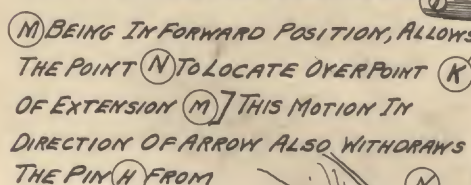 (M) BEING IN FORWARD POSITION, ALLOWS
THE POINT (N) TO LOCATE OVER POINT (K)
OF EXTENSION (M)] THIS MOTION IN
DIRECTION OF ARROW ALSO WITHDRAWS
THE PIN (H) FROM
N